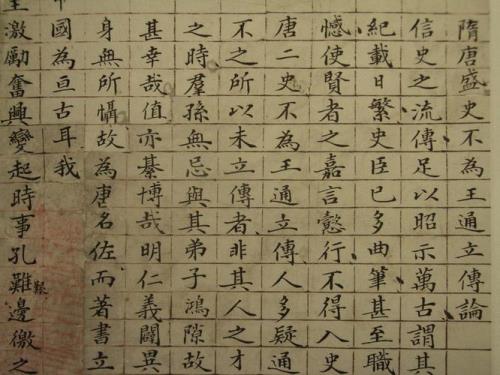 隋唐盛史不為王通立傳論
信史之流傳足以昭示萬古謂其
紀載日繁史臣已多曲筆甚至職
憾使賢者之嘉言懿行不得入史
唐二史不為王通立傳人多疑通
不之所以未立傳者非其人之才
之時羣孫無忌與其弟子鴻隙故
甚幸哉值亦綦博哉明仁義闢異
身無所懾故為唐名佐而著書立
國為亘古耳我
激勵奮興變起時事孔難邊徼之